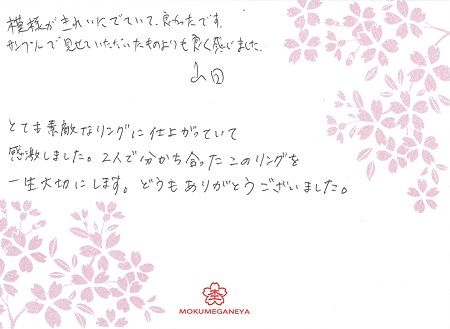 模様がきれいにでていて、良かったです。
サンプルで見せていただいたものよりも良く感じました。
山田
とても素敵なリングに仕上がっていて
感激しました。2人で分かち合ったこのリングを
一生大切にします。どうもありがとうございました。
MOKUMEGANEYA